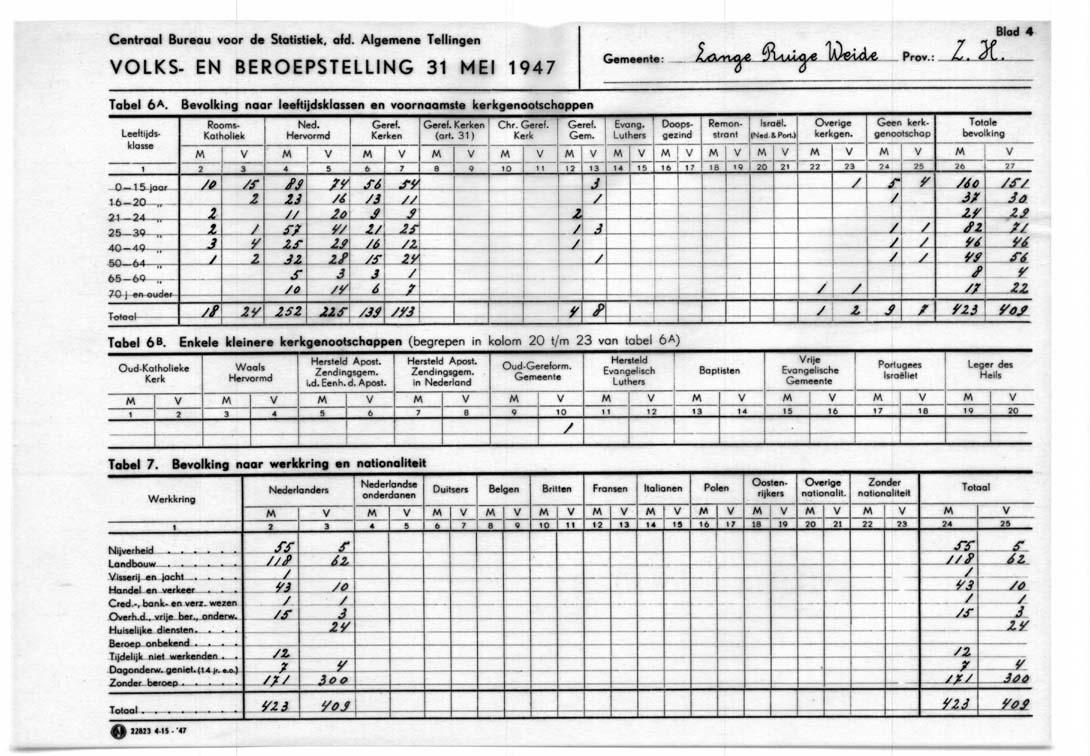 Blad 4
Centraal Bureau voor de Statistiek, afd. Algemene Tellingen
VOLKS- EN BEROEPSTELLING 31 MEI 1947
Gemeente: Lange Ruige Weide Prov.: Z. H.
Tabel 6A. Bevolking naar leeftijdsklassen en voornaamste kerkgenootschappen
Leeftijds-klasse | Rooms-Katholiek | Ned. Hervormd | Geref. Kerken | Geref. Kerken (art. 31) | Chr. Geref. Kerk | Geref. Gem. | Evang. Luthers | Doops-gezind | Remon-strant | Israël. (Ned. & Port.) | Overige kerkgen. | Geen kerk-genootschap | Totale bevolking
M V M V M V M V M V M V M V M V M V M V M V M V M V
1 2 3 4 5 6 7 8 9 10 11 12 13 14 15 16 17 18 19 20 21 22 23 24 25 26 27
0—15 jaar 10 15 89 74 56 54 3 1 5 4 160 151
16—20 „ 2 23 16 13 11 1 1 37 30
21—24 „ 2 11 20 9 9 2 24 29
25—39 „ 2 1 57 41 21 25 1 3 1 1 82 71
40—49 „ 3 4 25 29 16 12 1 1 1 46 46
50—64 „ 1 2 32 28 15 24 1 1 1 49 56
65—69 „ 5 3 3 1 8 4
70 j en ouder 10 14 6 7 1 1 17 22
Totaal 18 24 252 225 139 143 4 8 1 2 9 7 423 409
Tabel 6B. Enkele kleinere kerkgenootschappen (begrepen in kolom 20 t/m 23 van tabel 6A)
Oud-Katholieke Kerk | Waals Hervormd | Hersteld Apost. Zendingsgem. i.d. Eenh. d. Apost. | Hersteld Apost. Zendingsgem. in Nederland | Oud-Gereform. Gemeente | Hersteld Evangelisch Luthers | Baptisten | Vrije Evangelische Gemeente | Portugees Israëliet | Leger des Heils
M V M V M V M V M V M V M V M V M V M V
1 2 3 4 5 6 7 8 9 10 11 12 13 14 15 16 17 18 19 20
1
Tabel 7. Bevolking naar werkkring en nationaliteit
Werkkring | Nederlanders | Nederlandse onderdanen | Duitsers | Belgen | Britten | Fransen | Italianen | Polen | Oosten-rijkers | Overige nationalit. | Zonder nationaliteit | Totaal
M V M V M V M V M V M V M V M V M V M V M V M V
1 2 3 4 5 6 7 8 9 10 11 12 13 14 15 16 17 18 19 20 21 22 23 24 25
Nijverheid . . . . . . 55 5 55 5
Landbouw . . . . . . 118 62 118 62
Visserij en jacht . . . . 1 1
Handel en verkeer . . . 43 10 43 10
Cred.-, bank- en verz. wezen 1 1 1 1
Overh.d., vrije ber., onderw. 15 3 15 3
Huiselijke diensten . . . . 24 24
Beroep onbekend . . . .
Tijdelijk niet werkenden . . 12 12
Dagonderw. geniet. (14 jr. e.o.) 7 4 7 4
Zonder beroep . . . . . 171 300 171 300
Totaal . . . . . . . . 423 409 423 409
22823 4-15 - '47